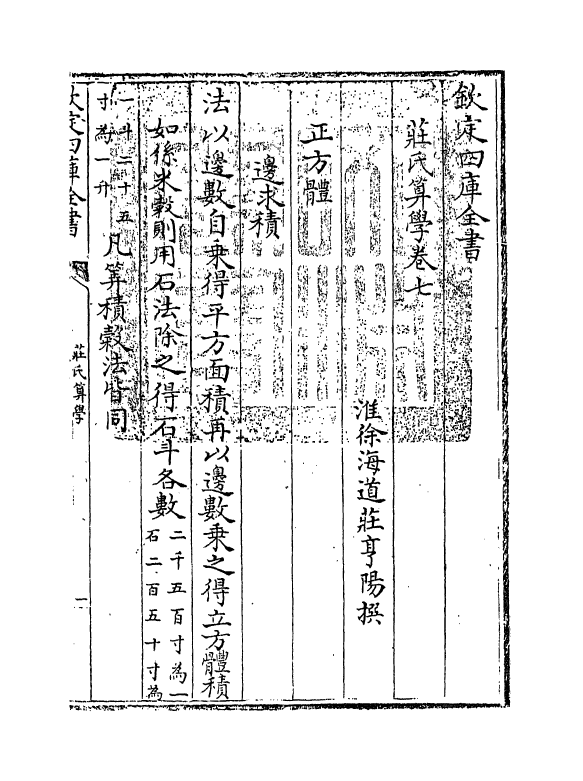 欽定四庫全書
莊氏算學卷七
淮徐海道莊亨陽撰
正方體
邊求積
法以邊數自乘得平方面積再以邊數乘之得立方體積
如係米穀則用石法除之得石斗各數二千五百寸為一
石二百五十寸為
一斗二十五
寸為一升
凡算積穀法皆同
欽定四庫全書
莊氏算學
一